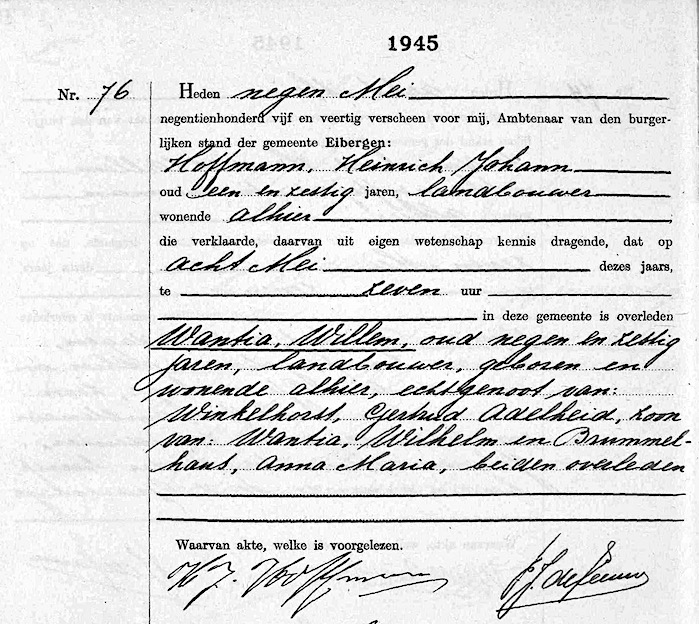 1945
Nr. 76 Heden negen Mei
negentienhonderd vijf en veertig verscheen voor mij, Ambtenaar van den burger-
lijken stand der gemeente Eibergen:
Hoffmann, Heinrich Johann
oud een en zestig jaren, landbouwer
wonende alhier
die verklaarde, daarvan uit eigen wetenschap kennis dragende, dat op
acht Mei dezes jaars,
te zeven uur
in deze gemeente is overleden
Wantia, Willem, oud negen en zestig
jaren, landbouwer, geboren en
wonende alhier, echtgenoot van:
Winkelhorst, Gertrud Adelheid, zoon
van: Wantia, Wilhelm en Brummel-
haus, Anna Maria, beiden overleden
Waarvan akte, welke is voorgelezen.
H J. Hoffmann